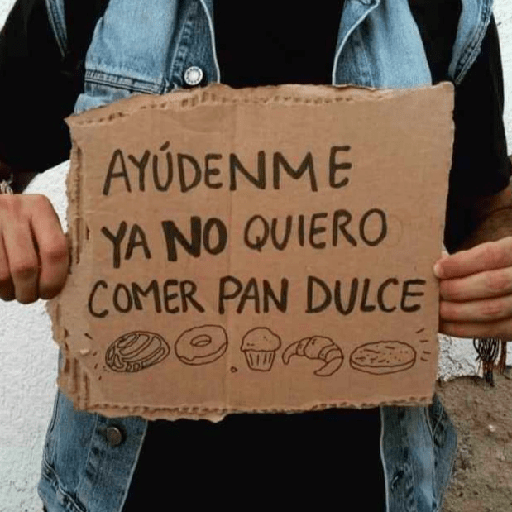 AYÚDENME
YA NO QUIERO
COMER PAN DULCE